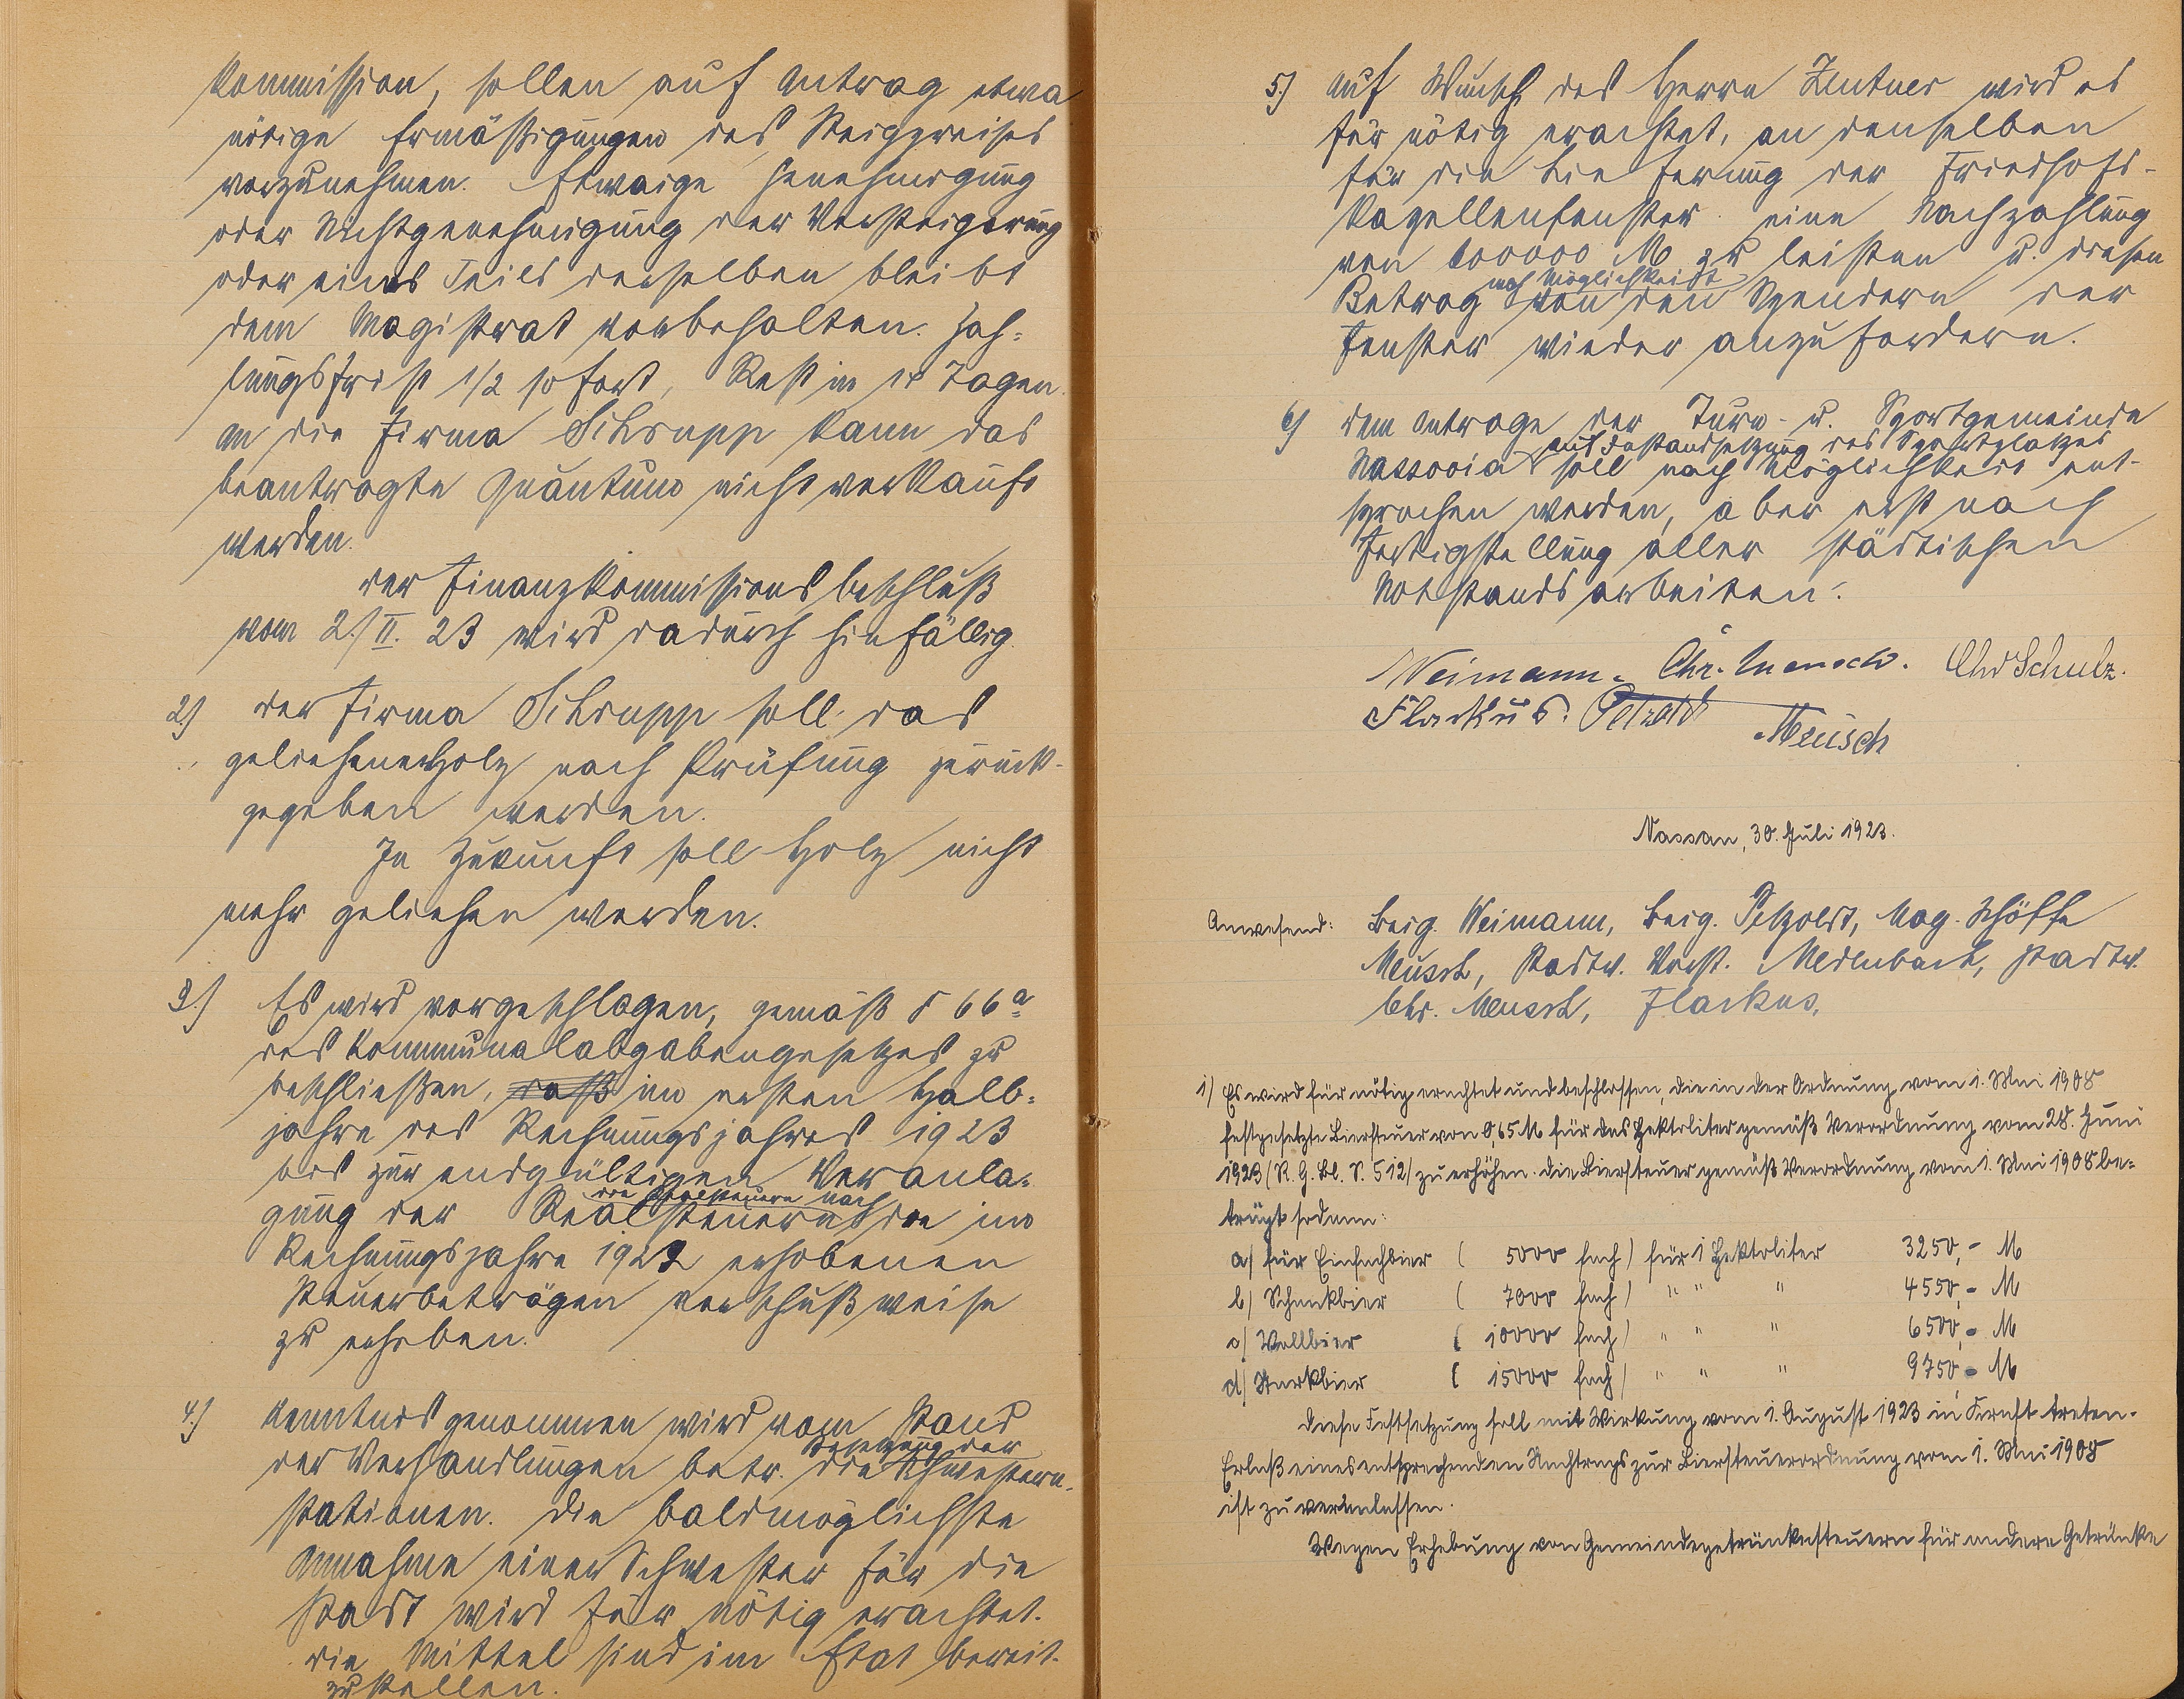 Kommission, sollen auf Antrag etwa
nötige Ermäßigungen des Steigpreises
vorzunehmen. Etwaige Genehmigung
oder Nichtgenehmigung der Versteigerung
oder eines Teiles derselben bleibt
dem Magistrat vorbehalten. Zah-
lungsfrist 1/2 sofort, Rest in 14 Tagen.
An die Firma Schrupp kann das
beantragte Quantum nicht verkauft
werden.
Der Finanzkommissionsbeschluß
vom 2./II. 23 wird dadurch hinfällig.
2.) Der Firma Schrupp soll das
geliehene Holz nach Prüfung zurück-
gegeben werden.
In Zukunft soll Holz nicht
mehr geliehen werden.
3.) Es wird vorgeschlagen, gemäß § 66a
des Kommunalabgabengesetzes zu
beschließen, daß im ersten Halb-
jahre des Rechnungsjahres 1923
bis zur endgültigen Veranla-
gung der Realsteuern die Realsteuern nach den im
Rechnungsjahre 1922 erhobenen
Steuerbeträgen vorschußweise
zu erheben.
4.) Kenntnis genommen wird vom Stand
der Verhandlungen betr. Besetzung der Schwestern-
stationen. Die baldmöglichste
Annahme einer Schwester für die
Stadt wird für nötig erachtet.
Die Mittel sind im Etat bereit-
zustellen.
5.) Auf Wunsch des Herrn Zentner wird es
für nötig erachtet, an denselben
für die Lieferung der Friedhofs-
kapellenfenster eine Nachzahlung
von 600000 M zu leisten u. diesen
Betrag nach Möglichkeit von den Spendern der
Fenster wieder anzufordern.
6) Dem Antrage der Turn- u. Sportgemeinde
Nassovia auf Instandsetzung des Sportplatzes soll nach Möglichkeit ent-
sprochen werden, aber erst nach
Fertigstellung aller städtischen
Notstandsarbeiten.
Weimann. Chr. Meusch. Chr Schulz.
Flackus. Petzold Meusch
Nassau, 30. Juli 1923.
Anwesend: Beig. Weimann, Beig. Petzoldt, Mag. Schöffe
Meusch, Stadtv. Vorst. Medenbach, Stadtv.
Chr. Meusch, Flackus.
1) Es wird für nötig erachtet und beschlossen, die in der Ordnung vom 1. Mai 1908
festgesetzte Biersteuer von 0,65 M für das Hektoliter gemäß Verordnung vom 28. Juni
1923 (R. G. Bl. S. 512) zu erhöhen. Die Biersteuer gemäß Verordnung vom 1. Mai 1908 be-
trägt sodann:
a) für Einfachbier ( 5000 fach) für 1 Hektoliter 3250,- M
b) Schankbier ( 7000 fach) " " " 4550,- M
c) Vollbier ( 10000 fach) " " " 6500,- M
d) Starkbier ( 15000 fach) " " " 9750,- M
Diese Festsetzung soll mit Wirkung vom 1. August 1923 in Kraft treten.
Erlaß eines entsprechenden Nachtrags zur Biersteuerordnung vom 1. Mai 1908
ist zu veranlassen.
Wegen Erhebung von Gemeindegetränkesteuern für andere Getränke